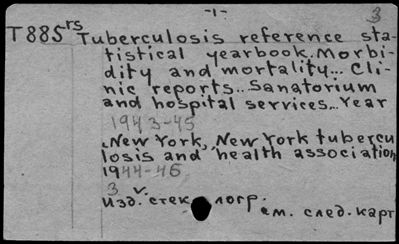 -1- 3
T885rs Tuberculosis reference sta-
tistical yearbook. Morbi-
dity and mortality... Cli-
nic reports... Sanatorium
and hospital services... Year
1943-45
New York, New York tubercu
losis and health association
1944-46
3 v.
Изд. стеклогр.
см. след. карт